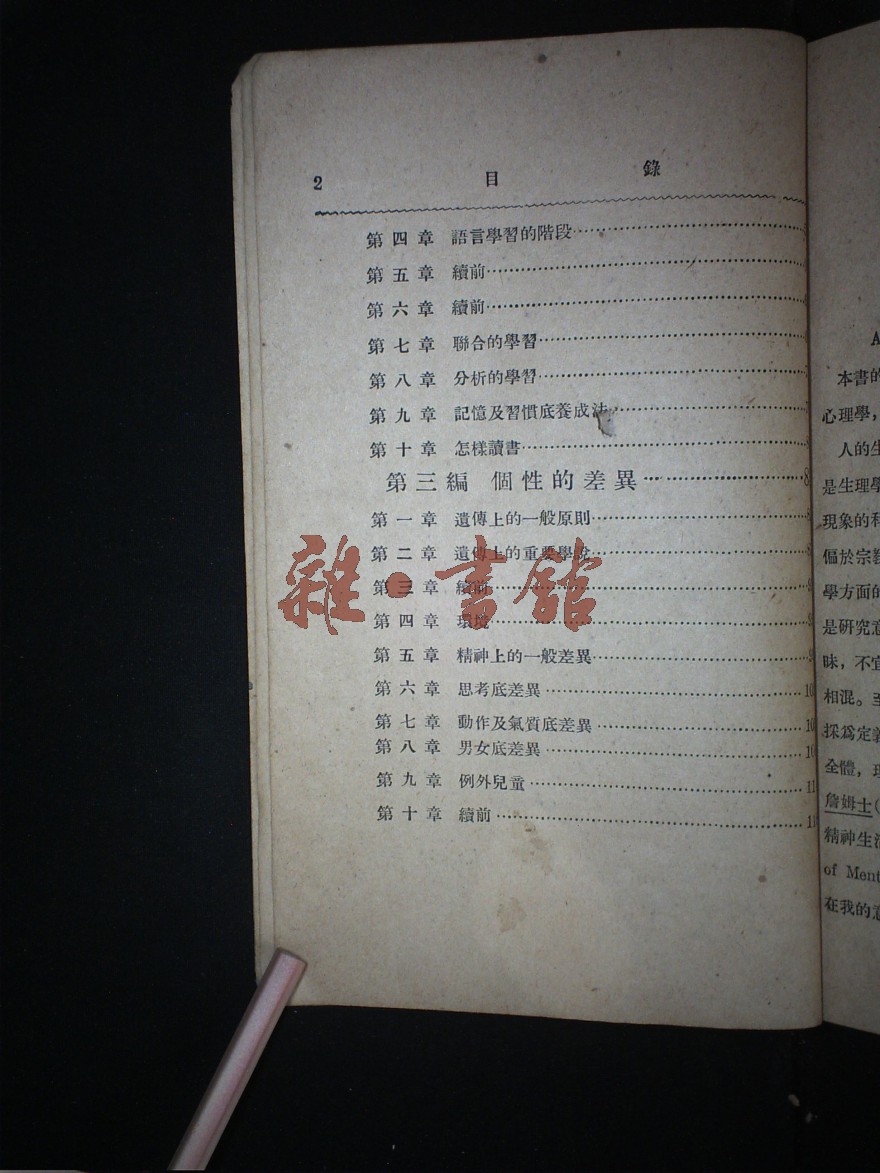 2 目 錄
第四章 語言學習的階段
第五章 續前
第六章 續前
第七章 聯合的學習
第八章 分析的學習
第九章 記憶及習慣底養成法
第十章 怎樣讀書
第三編 個性的差異 8
第一章 遺傳上的一般原則
第二章 遺傳上的重要學說
第三章 續前
第四章 環境
第五章 精神上的一般差異
第六章 思考底差異 10
第七章 動作及氣质底差異 10
第八章 男女底差異 10
第九章 例外兒童 11
第十章 續前 11
雜·書館
A
本書的
心理學,
人的生
是生理學
現象的科
偏於宗教
學方面的
是研究意
味,不宜
相混。至
採爲定義
全體,現
詹姆士(
精神生活
of Ment
在我的意